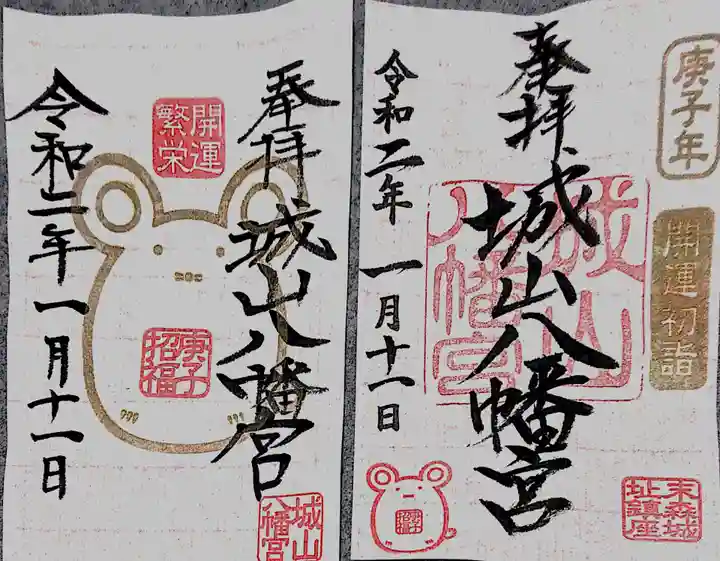 奉拝
城山八幡宮
令和二年一月十一日
開運
繁栄
庚子
招福
城山
八幡宮
庚子年
開運初詣
奉拝
城山八幡宮
令和二年一月十一日
城山
八幡宮
末森城
址鎮座